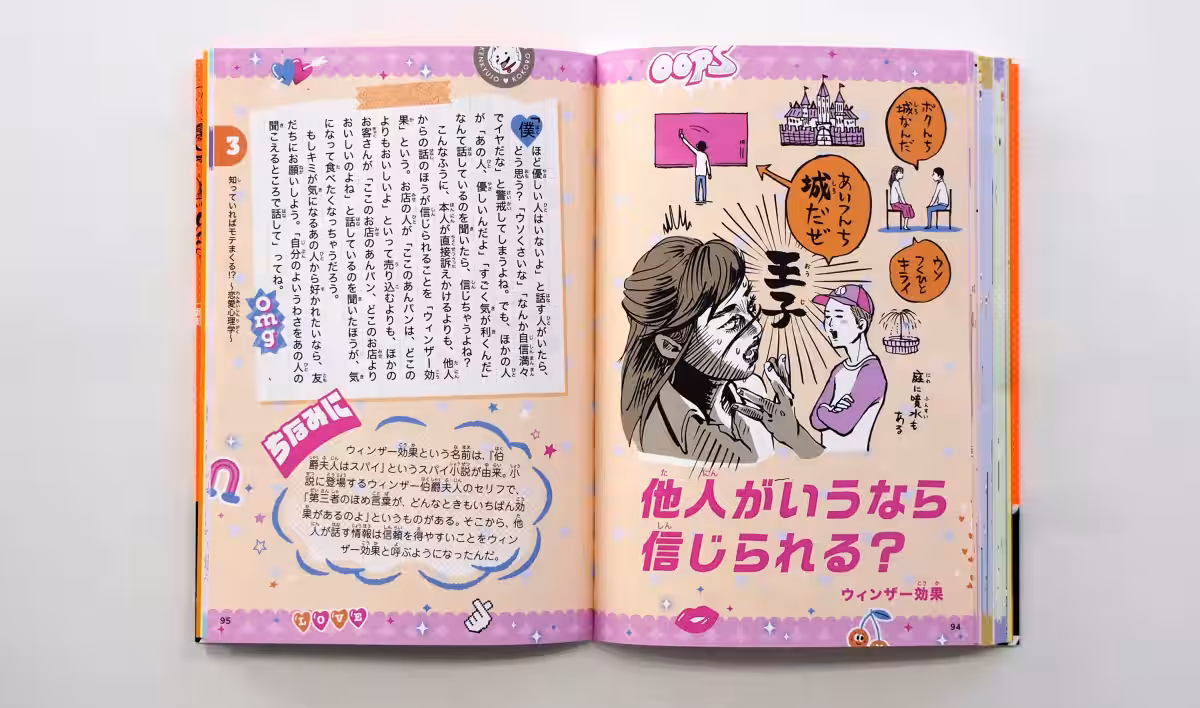 OOPS
ボクんち
城なんだ
あいつんち
城だぜ
ウソ
つくひと
キライ
王子
庭に噴水も
ある
他人がいうなら
信じられる？
ウィンザー効果
94
KENKYUJO ♥ KOKORO
3
知っていればモテまくる!? 〜恋愛心理学〜
「僕ほど優しい人はいないよ」と話す人がいたら、
どう思う？「ウソくさいな」「なんか自信満々
でイヤだな」と警戒してしまうよね。でも、ほかの人
が「あの人、優しいんだよ」「すごく気が利くんだ」
なんて話しているのを聞いたら、信じちゃうよね？
こんなふうに、本人が直接訴えかけるよりも、他人
からの話のほうが信じられることを「ウィンザー効
果」という。お店の人が「ここのあんパンは、どこの
よりもおいしいよ」といって売り込むよりも、ほかの
お客さんが「ここのお店のあんパン、どこのお店より
おいしいのよね」と話しているのを聞いたほうが、気
になって食べたくなっちゃうだろう。
もしキミが気になるあの人から好かれたいなら、友
だちにお願いしよう。「自分のよいうわさをあの人の
聞こえるところで話して」ってね。
omg
ちなみに
ウィンザー効果という名前は、『伯
爵夫人はスパイ』というスパイ小説が由来。小
説に登場するウィンザー伯爵夫人のセリフで、
「第三者のほめ言葉が、どんなときもいちばん効
果があるのよ」というものがある。そこから、他
人が話す情報は信頼を得やすいことをウィン
ザー効果と呼ぶようになったんだ。
95
LOVE